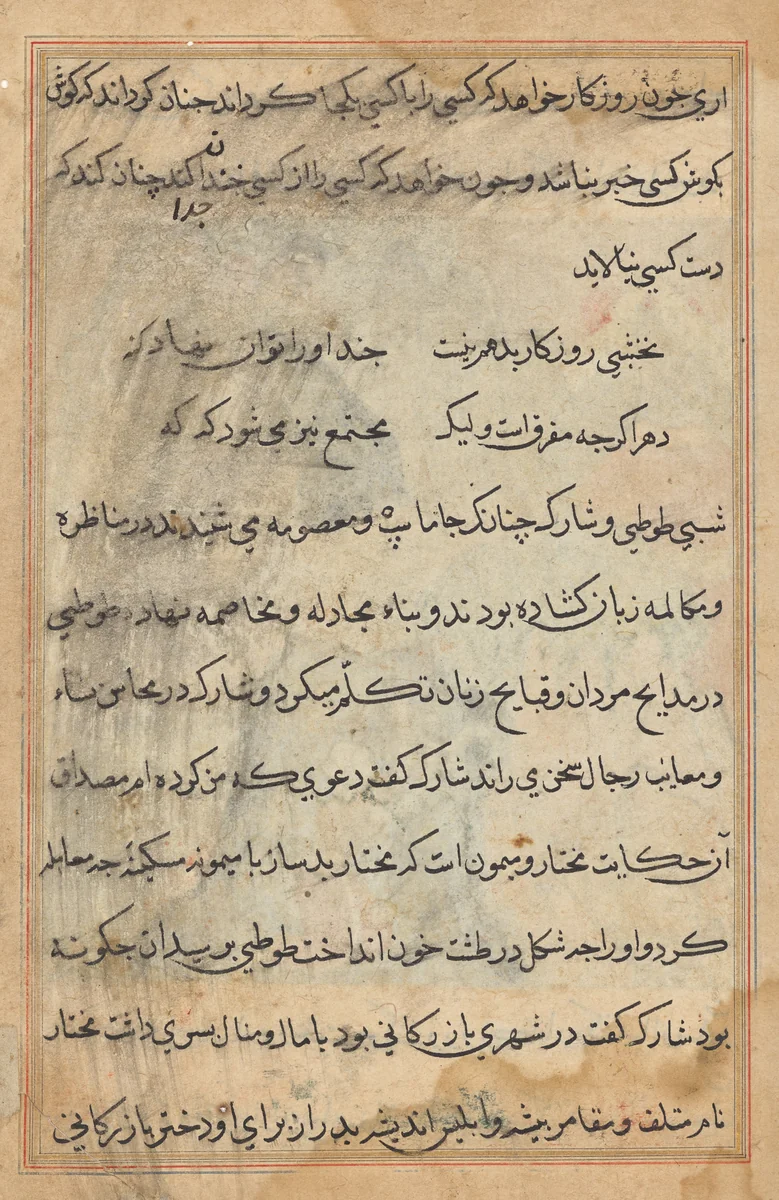 اري جون روزكار خواهد كه كسي را با كسي يكجا كرداند جنان كرداند كه كوش
بكوش كسي خبر نباشد و جون خواهد كه كسي را از كسي كند چنان كند كه
جدا
دست كسي نيالايد
نخشبي روزكار بدهم نيست جند او را توان نهاد كنه
دهر اكرجه مفرق است وليك مجتمع نيز مي شود كه كه
شبي طوطي و شارك چنانك جاماسپ و معصومه مي شنيدند در مناظره
و مكالمه زبان كشاده بودند و بناء مجادله و مخاصمه نهاده طوطي
در مدايح مردان و قبايح زنان تكلّم ميكرد و شارك در محاسن نساء
و معايب رجال سخن مي راند شارك كفت دعوي كه من كرده ام مصداق
آن حكايت مختار و ميمون است كه مختار بدساز با ميمونه مسكينه جه معامله
كرد و او را جه شكل در طشت خون انداخت طوطي برسيد ان جكونه
بود شارك كفت در شهري بازركاني بود با مال و منال بسري داشت مختار
نام متلف و مقامر بيشه و ابليس انديشه بدر از براي او دختر بازركاني